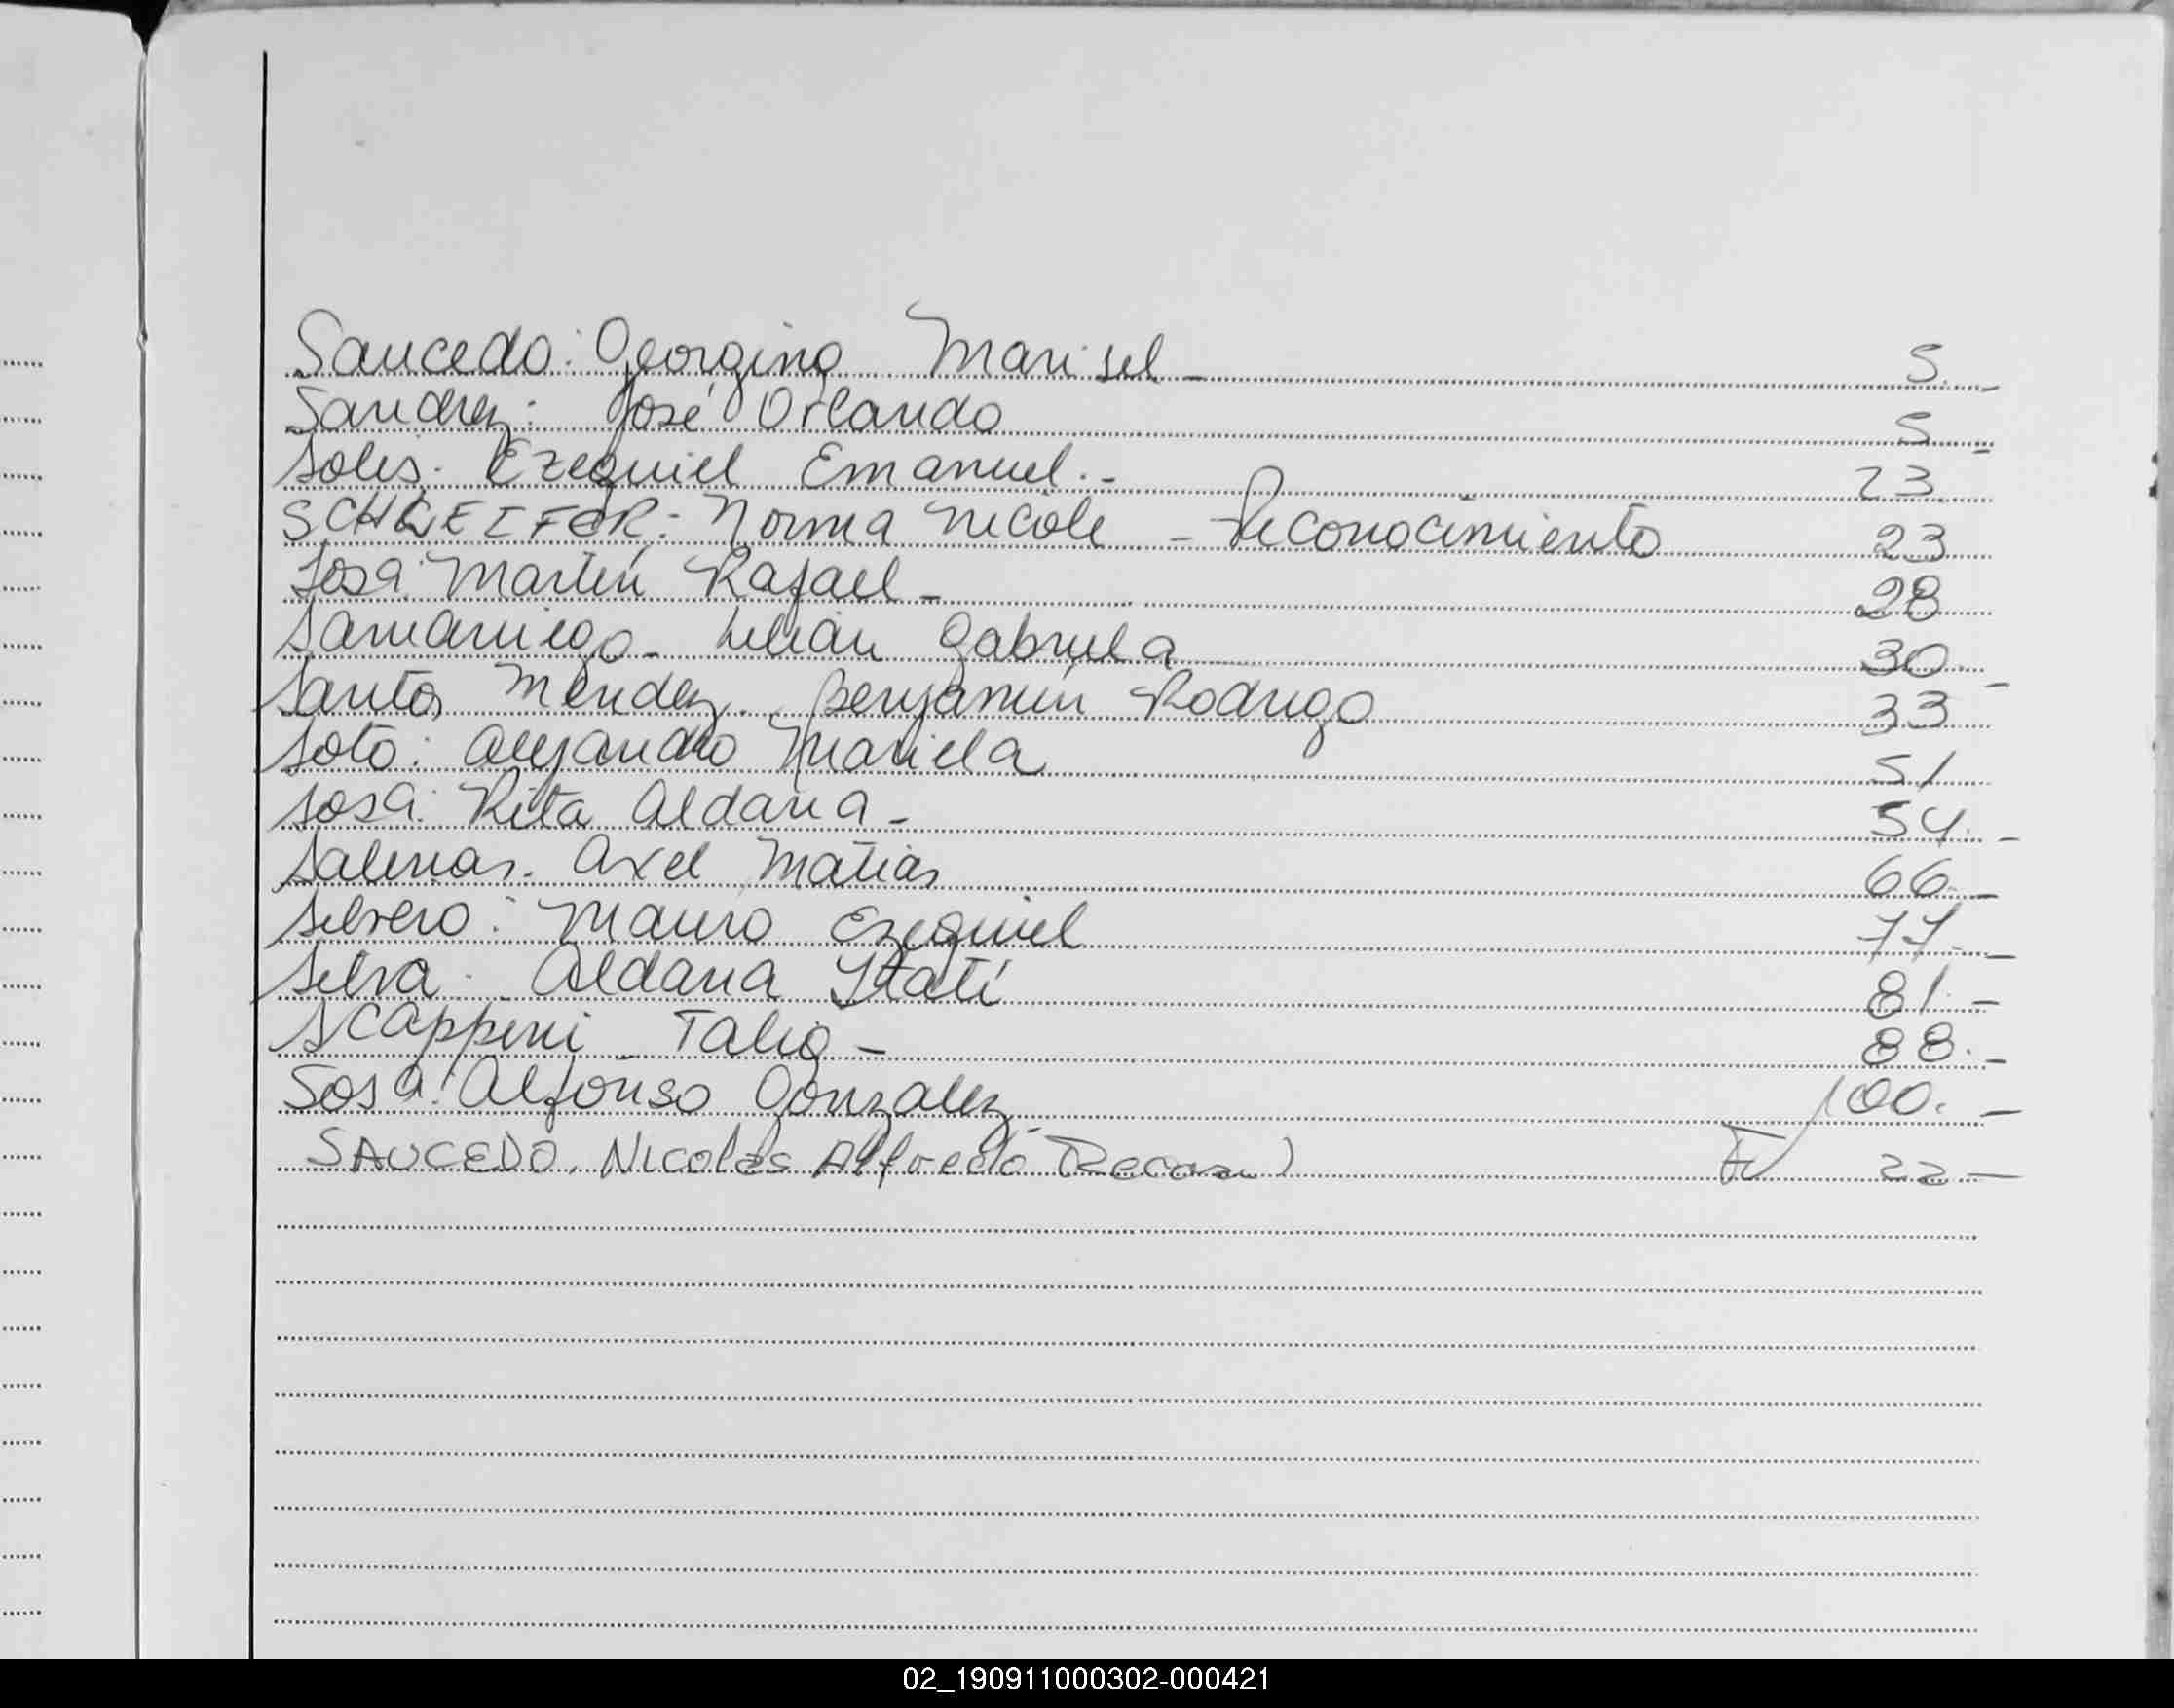 Saucedo: Georgina Marisel - 5. -
Sanchez: José Orlando 5 -
Solis. Ezequiel Emanuel. - 23
SCHLEIFER: Norma Nicole - Reconocimiento 23
Sosa: Martín Rafael - 28
Samaniego - Lilián Gabriela 30 -
Santos Méndez. Benjamín Rodrigo 33
Soto: Alejandro Mariela 51
Sosa: Rita Aldana - 54. -
Salinas. Axel Matías 66. -
Silvero: Mauro Ezequiel 77. -
Silva. Aldana Itatí 81. -
Scappini - Talia - 88. -
Sosa: Alfonso Gonzalez 100. -
SAUCEDO, Nicolás Alfredo 22 -
02_190911000302-000421